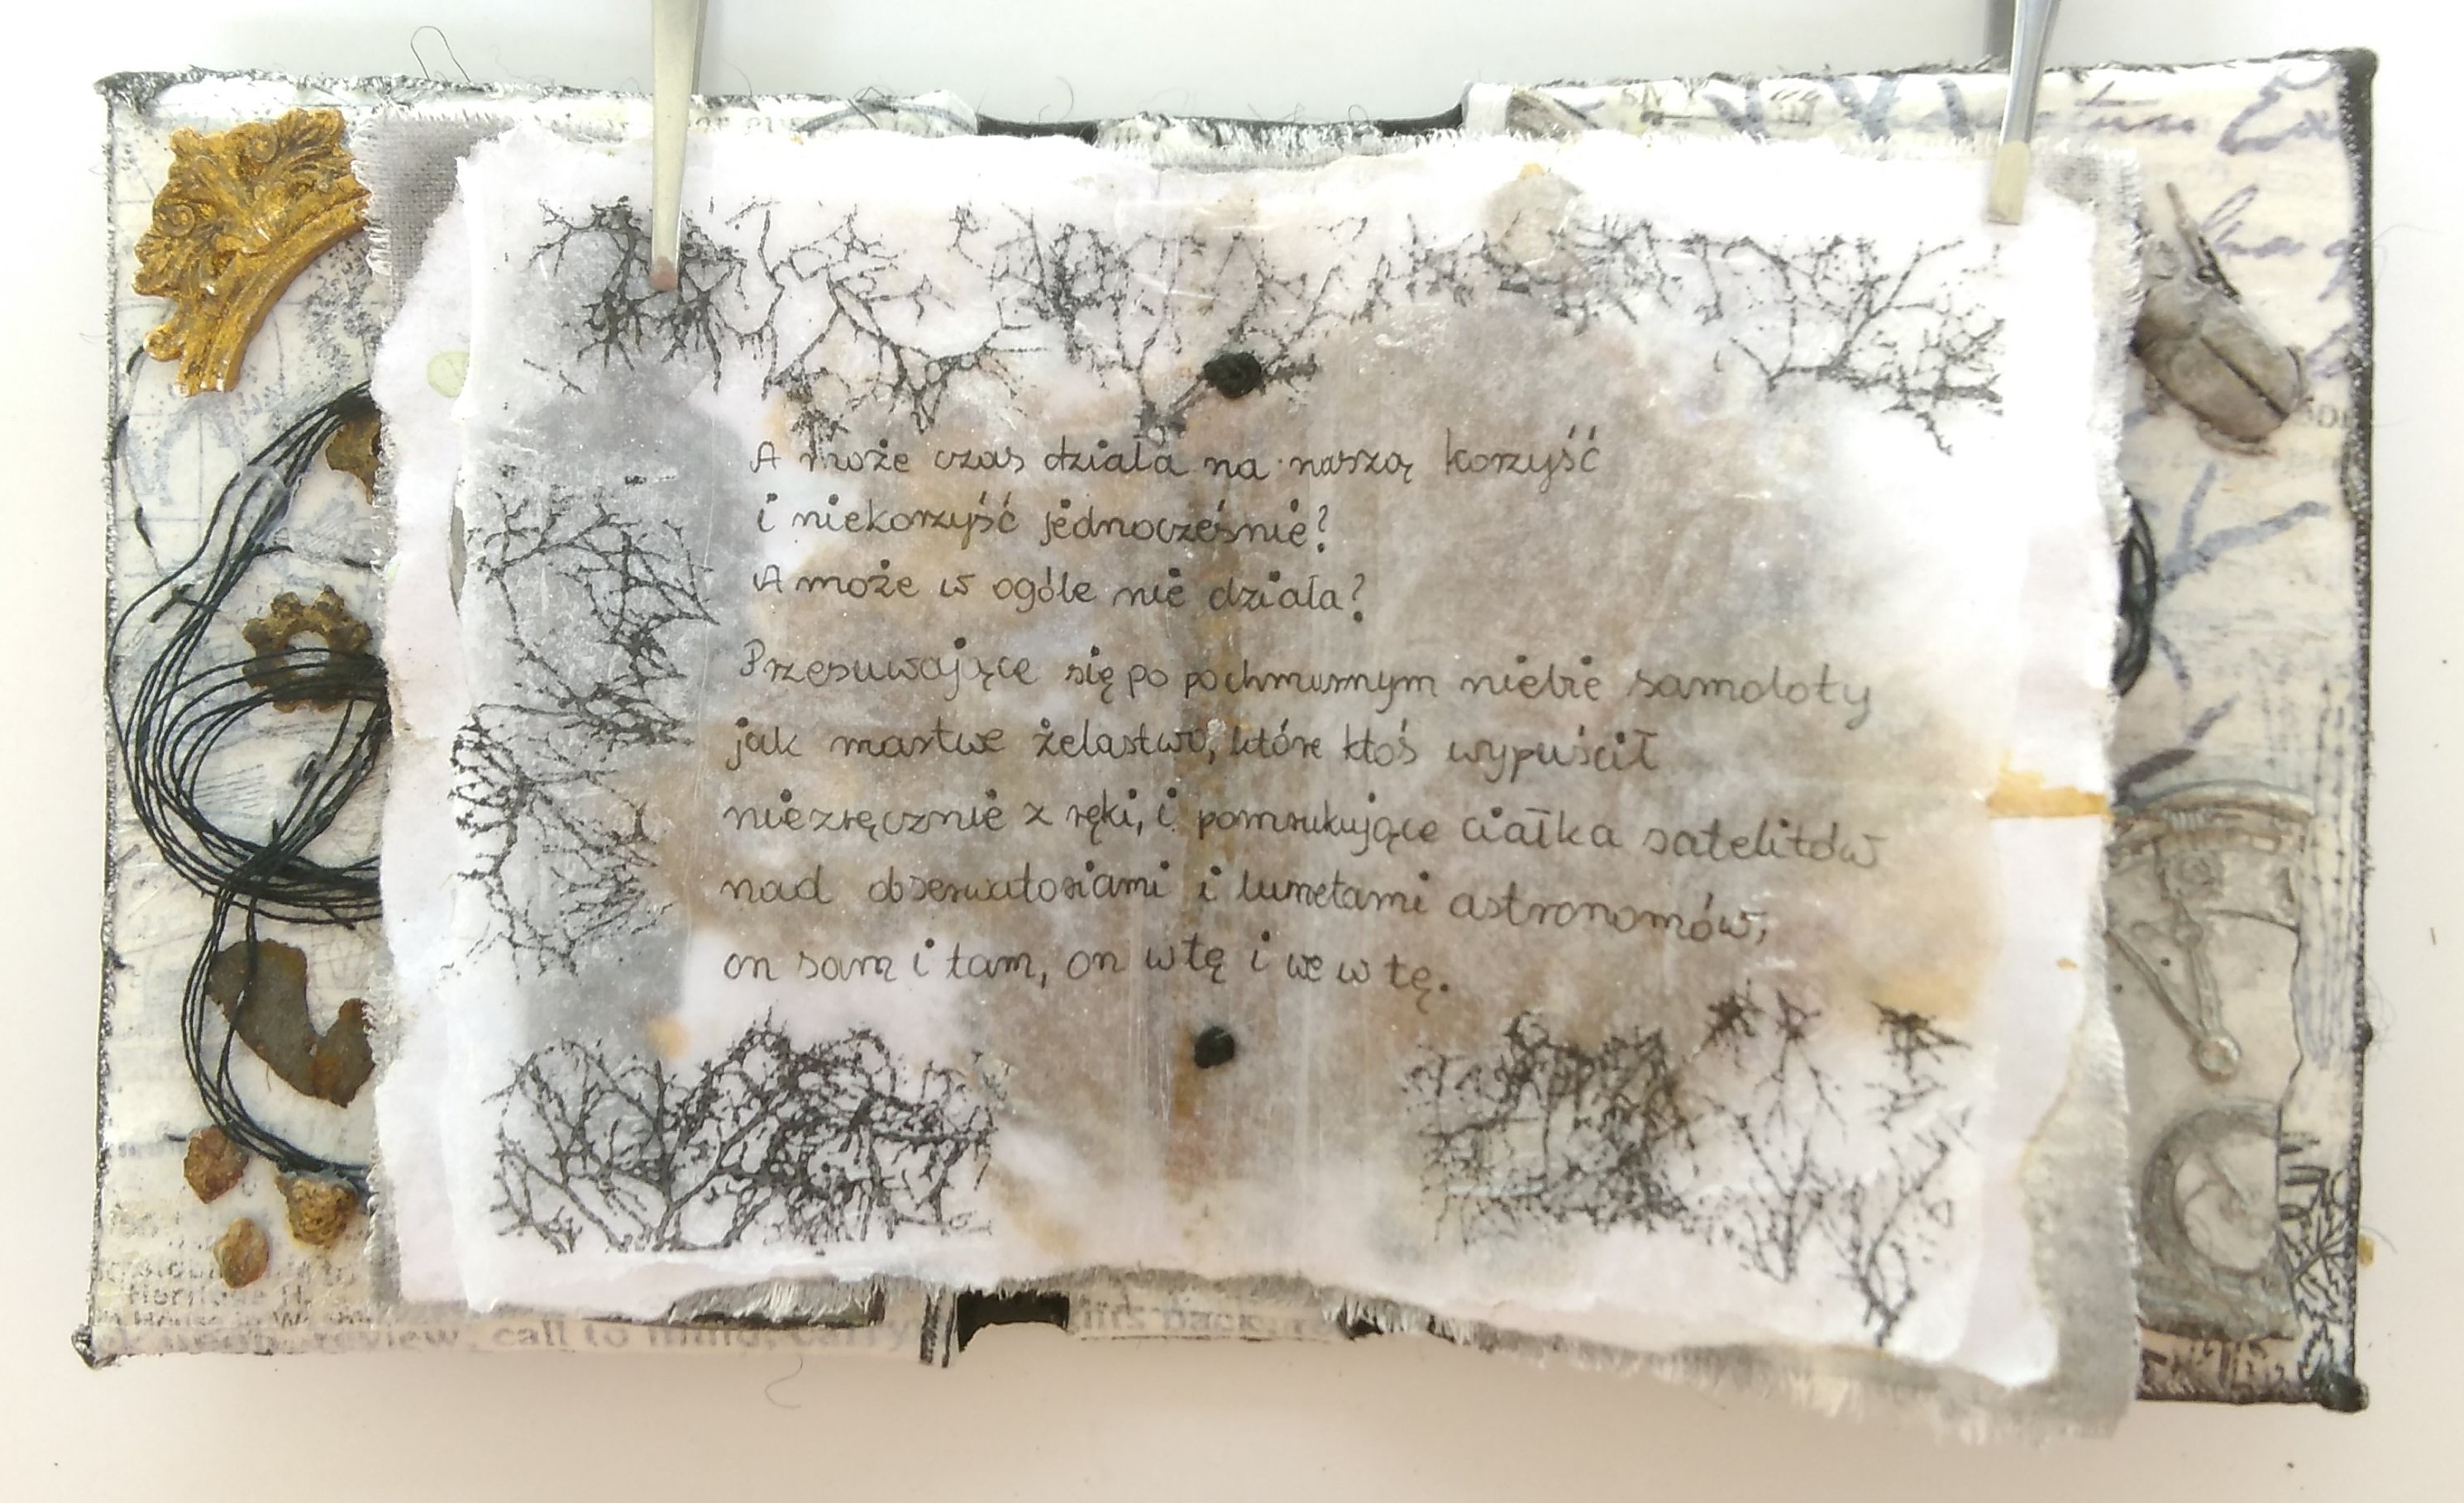 A może czas działa na naszą korzyść
i niekorzyść jednocześnie?
A może w ogóle nie działa?
Przesuwające się po pochmurnym niebie samoloty
jak martwe żelastwo, które ktoś wypuścił
niezręcznie z ręki, i pomrukujące ciałka satelitów
nad obserwatoriami i lunetami astronomów,
on sam i tam, on w tę i we w tę.
Heritage H.
review, call to mind, carry
back